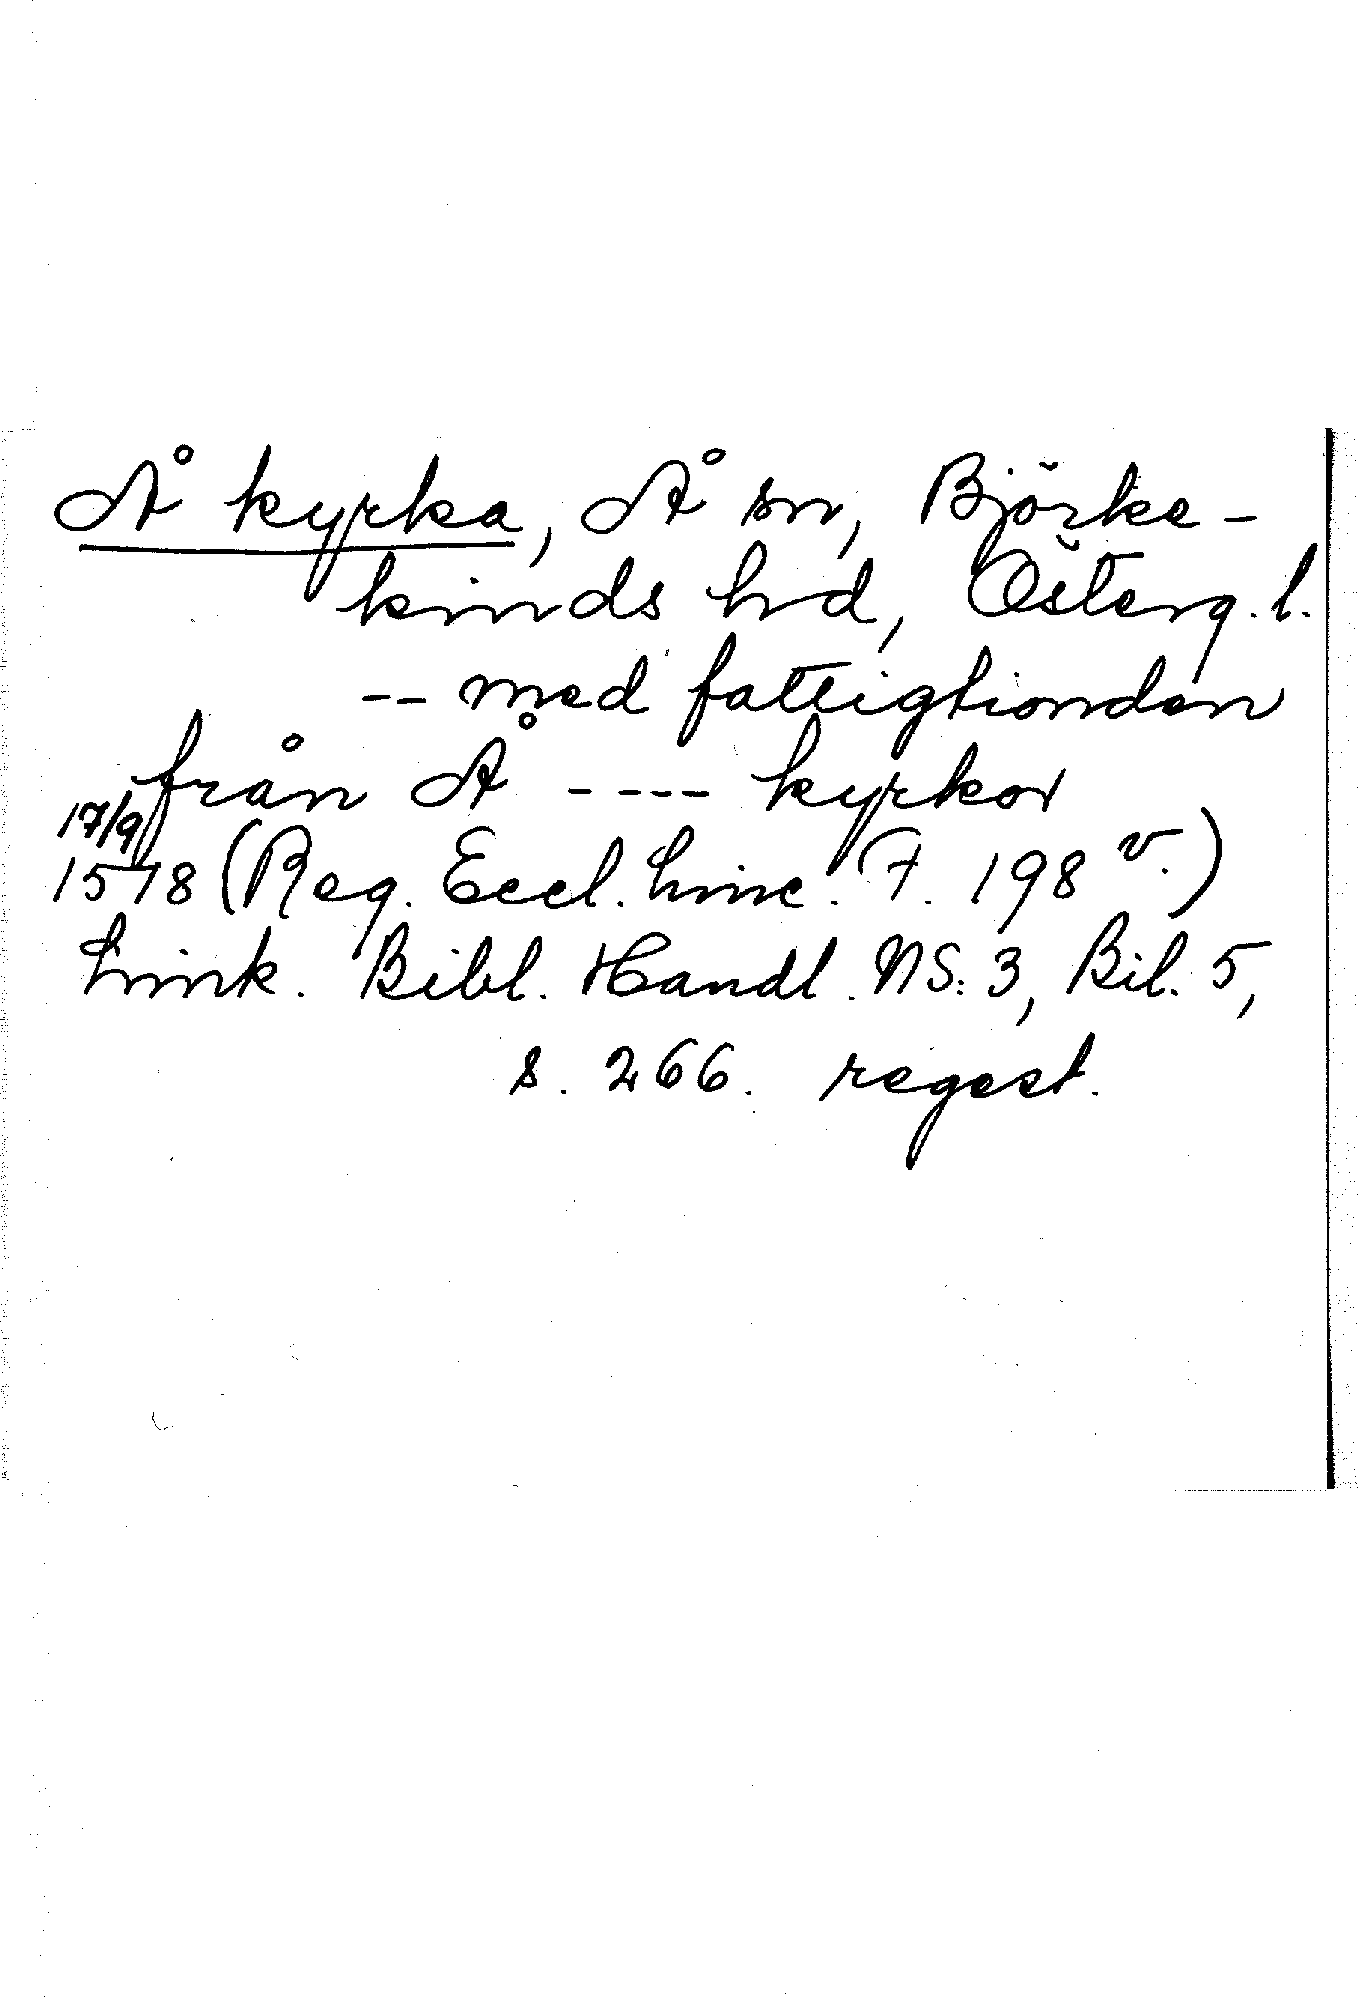 Å kyrka, Å sn, Björke-
kinds hd, Österg. l.
-- med fattigtionden
från Å ---- kyrkor
17/9
1578 (Reg. Eccl. Linc. F. 198 v.)
Link. Bibl. Handl. NS: 3, Bil. 5,
s. 266. regest.